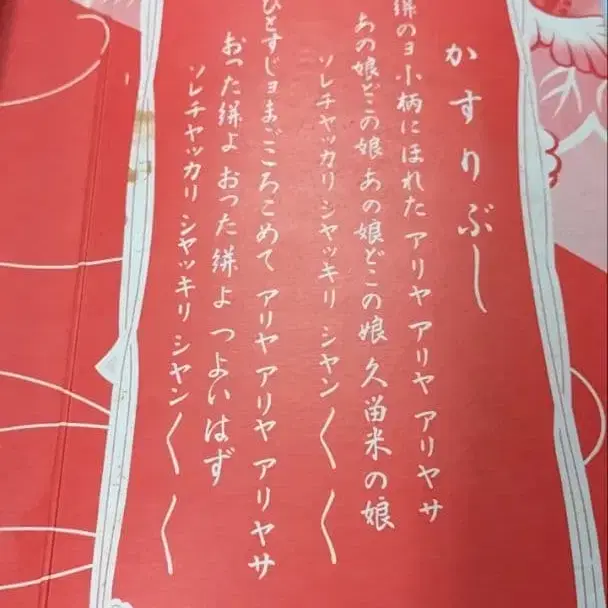 かすりぶし
絣のヨ小柄にほれた アリヤ アリヤ アリヤサ
あの娘どこの娘 あの娘どこの娘 久留米の娘
ソレチャッカリ シャッキリ シャン〱〱
ひとすじョまごころこめて アリヤ アリヤ アリヤサ
おった絣よ おった絣よ つよいはず
ソレチャッカリ シャッキリ シャン〱〱